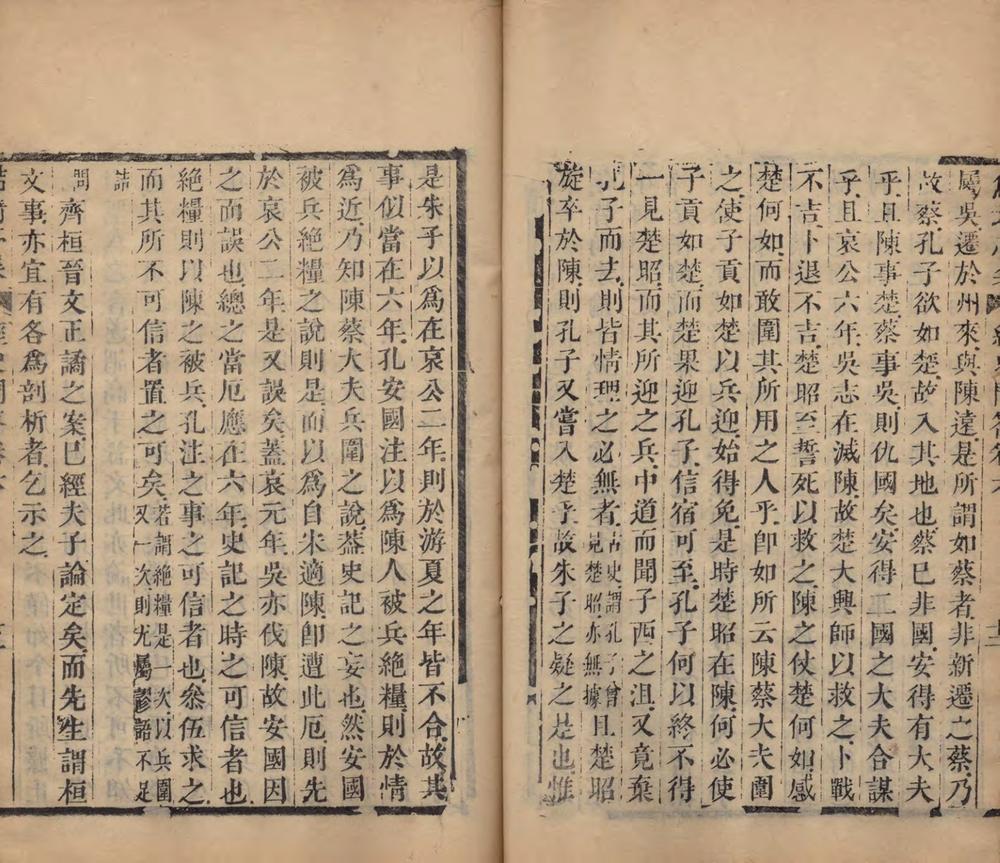 屬吳遷於州來與陳遠是所謂如蔡者非新遷之蔡乃
故蔡孔子欲如楚故入其地也蔡巳非國安得有大夫
乎且陳事楚蔡事吳則仇國矣安得二國之大夫合謀
乎且哀公六年吳志在滅陳故楚大興師以救之卜戰
不吉卜退不吉楚昭至誓死以救之陳之仗楚何如感
楚何如而敢圍其所用之人乎卽如所云陳蔡大夫圍
之使子貢如楚以兵迎始得免是時楚昭在陳何必使
子貢如楚而楚果迎孔子信宿可至孔子何以終不得
一見楚昭而其所迎之兵中道而聞子西之沮又竟棄
孔子而去則皆情理之必無者古史謂孔子曾見楚昭亦無據且楚昭
旋卒於陳則孔子又嘗入楚乎故朱子之疑之是也惟
是朱子以爲在哀公二年則於游夏之年皆不合故其
事似當在六年孔安國注以爲陳人被兵絕糧則於情
爲近乃知陳蔡大夫兵圍之說葢史記之妄也然安國
被兵絕糧之說則是而以爲自宋適陳卽遭此厄則先
於哀公二年是又誤矣蓋哀元年吳亦伐陳故安國因
之而誤也總之當厄應在六年史記之時之可信者也
絕糧則以陳之被兵孔注之事之可信者也叅伍求之
而其所不可信者置之可矣若謂絕糧是一次以兵圍又一次則尤屬謬語不足
詰
問齊桓晉文正譎之案巳經夫子論定矣而先生謂桓
文事亦宜有各爲剖析者乞示之